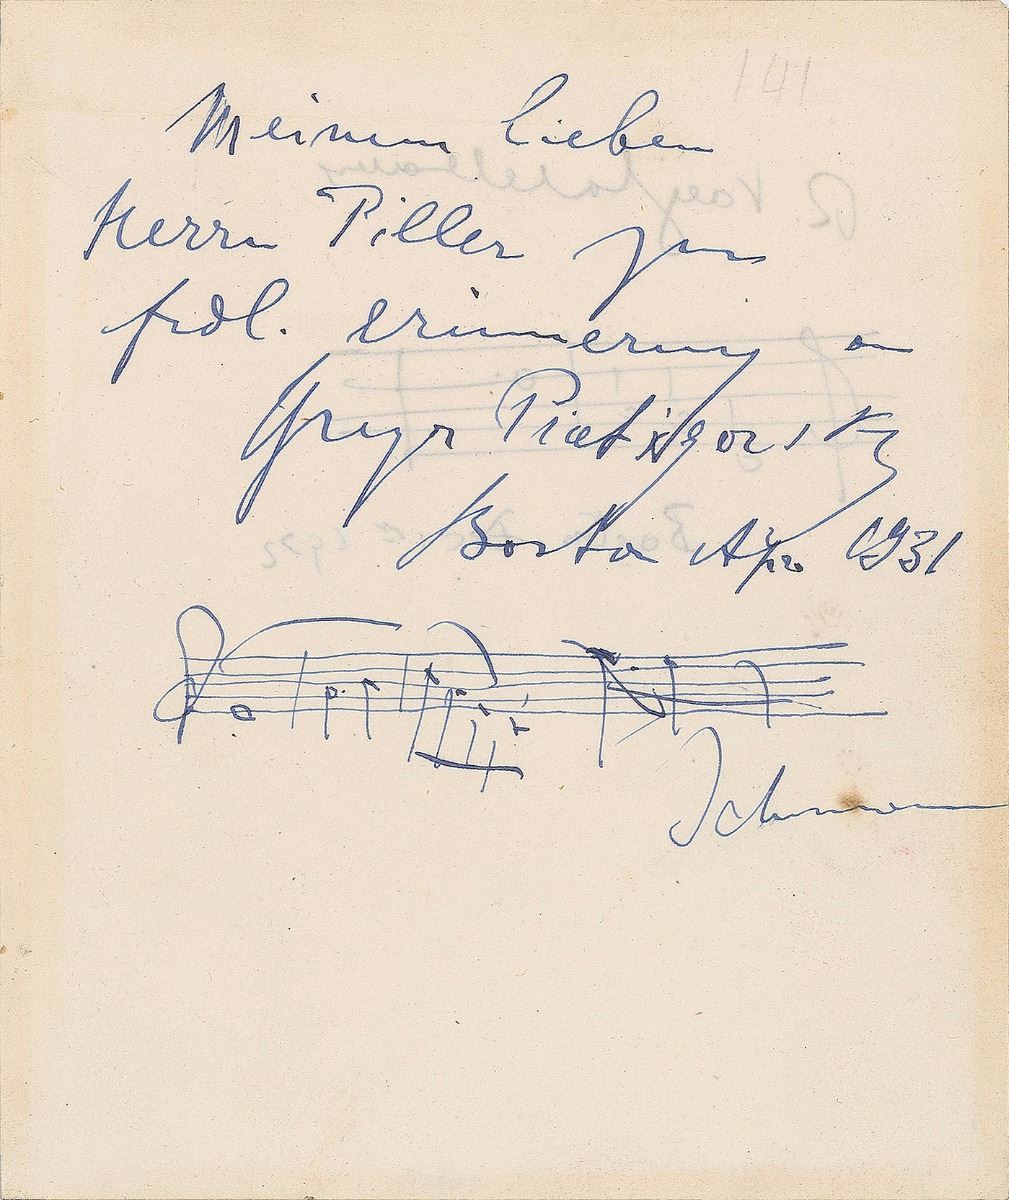 Meinem lieben
Herrn Piller zur
frdl. Erinnerung an
Gregor Piatigorsky
Boston Apr. 1931
Schumann
141